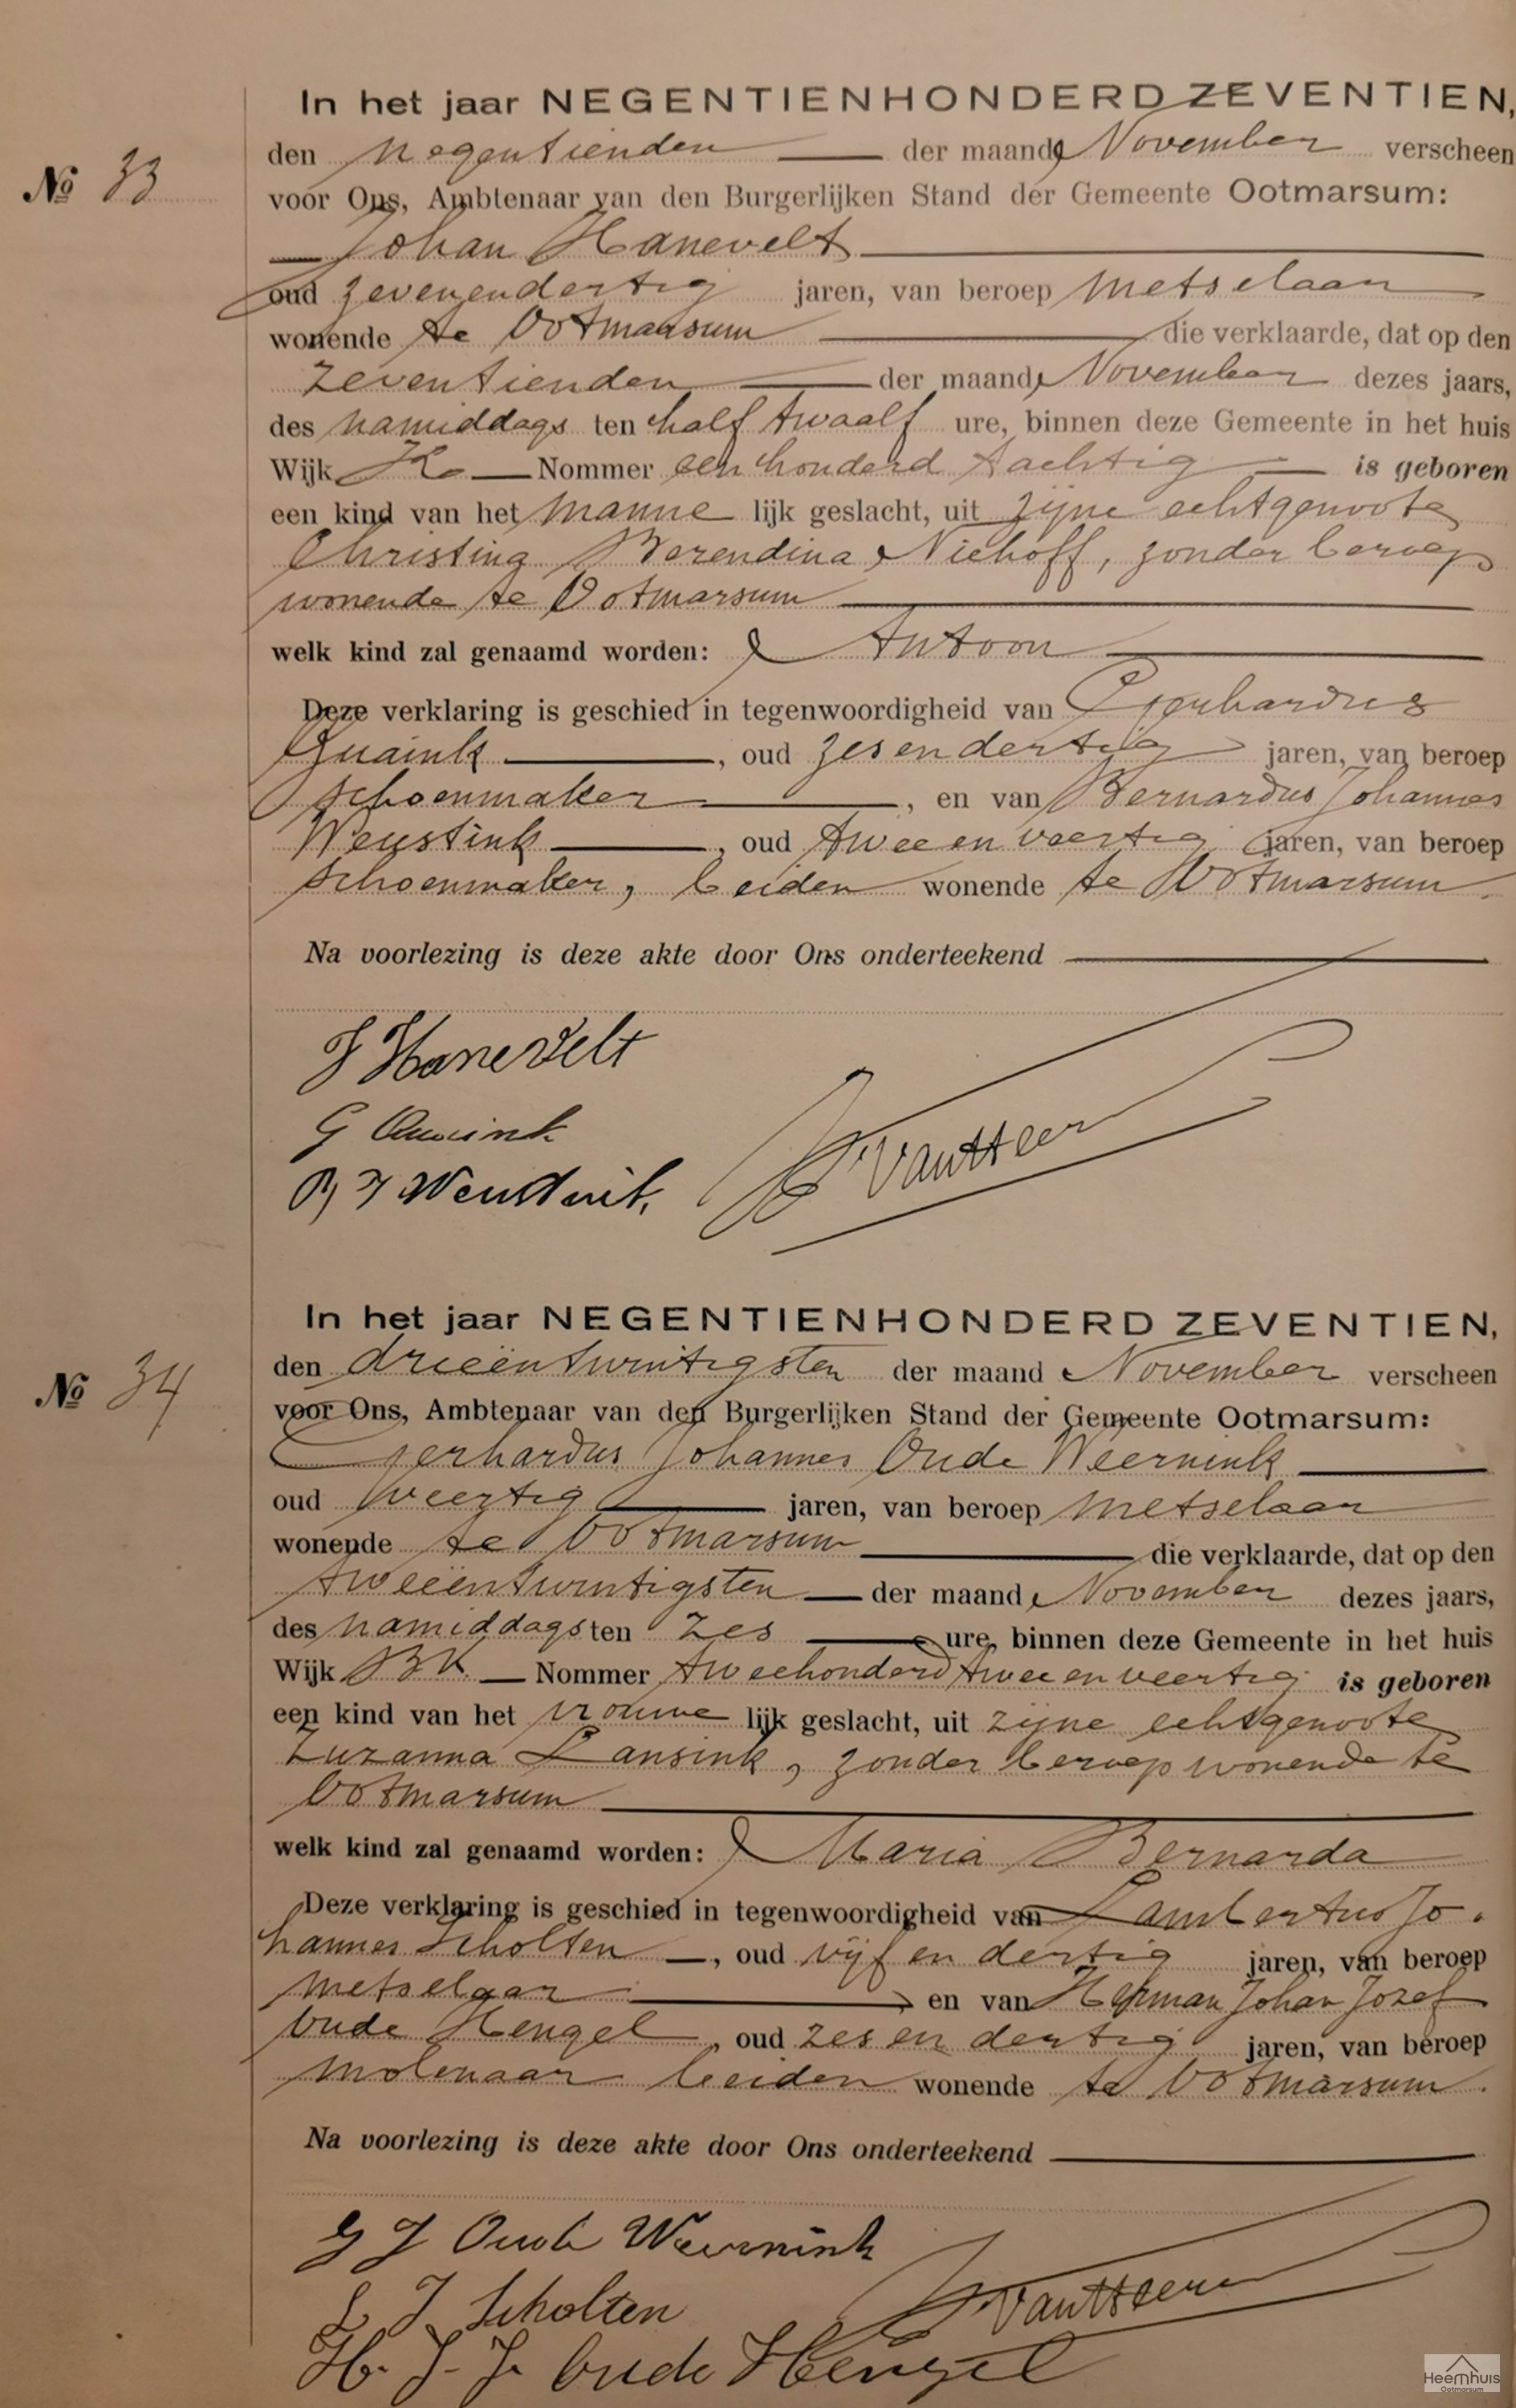 In het jaar NEGENTIENHONDERD ZEVENTIEN,
den negentienden der maand November verscheen
No 33
voor Ons, Ambtenaar van den Burgerlijken Stand der Gemeente Ootmarsum:
Johan Hanevelt
oud zevenendertig jaren, van beroep metselaar
wonende te Ootmarsum die verklaarde, dat op den
zeventienden der maand November dezes jaars,
des namiddags ten half twaalf ure, binnen deze Gemeente in het huis
Wijk K Nommer een honderd tachtig is geboren
een kind van het manne lijk geslacht, uit zijne echtgenoote
Christina Berendina Niehoff, zonder beroep
wonende te Ootmarsum
welk kind zal genaamd worden: Antoon
Deze verklaring is geschied in tegenwoordigheid van Gerhardus
Quaink, oud zesendertig jaren, van beroep
schoenmaker, en van Bernardus Johannes
Weustink, oud twee en veertig jaren, van beroep
schoenmaker, beiden wonende te Ootmarsum.
Na voorlezing is deze akte door Ons onderteekend
J Hanevelt
G
B J Weustink.
In het jaar NEGENTIENHONDERD ZEVENTIEN,
den drieëntwintigsten der maand November verscheen
No 34
voor Ons, Ambtenaar van den Burgerlijken Stand der Gemeente Ootmarsum:
Gerhardus Johannes Oude Weernink
oud veertig jaren, van beroep metselaar
wonende te Ootmarsum die verklaarde, dat op den
tweeëntwintigsten der maand November dezes jaars,
des namiddags ten zes ure, binnen deze Gemeente in het huis
Wijk BK Nommer tweehonderd twee en veertig is geboren
een kind van het vrouwe lijk geslacht, uit zijne echtgenoote
Zuzanna Lansink, zonder beroep wonende te
Ootmarsum
welk kind zal genaamd worden: Maria Bernarda
Deze verklaring is geschied in tegenwoordigheid van Lambertus Jo-
hannes Scholten, oud vijf en dertig jaren, van beroep
metselaar, en van Herman Johan Jozef
Oude Hengel, oud zes en dertig jaren, van beroep
molenaar beiden wonende te Ootmarsum.
Na voorlezing is deze akte door Ons onderteekend
G J Oude Weernink
L J Scholten
H. J. J. Oude Hengel
Heemhuis
Ootmarsum